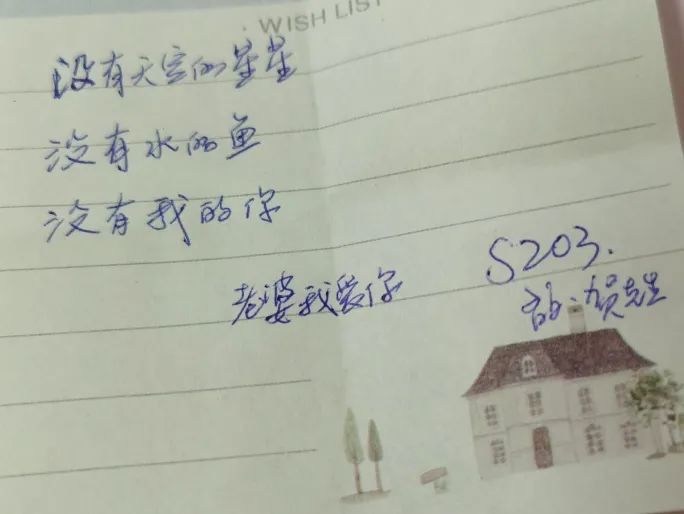 WISH LIST
没有天空的星星
没有水的鱼
没有我的你
老婆我爱你
S203.
的·贺先生